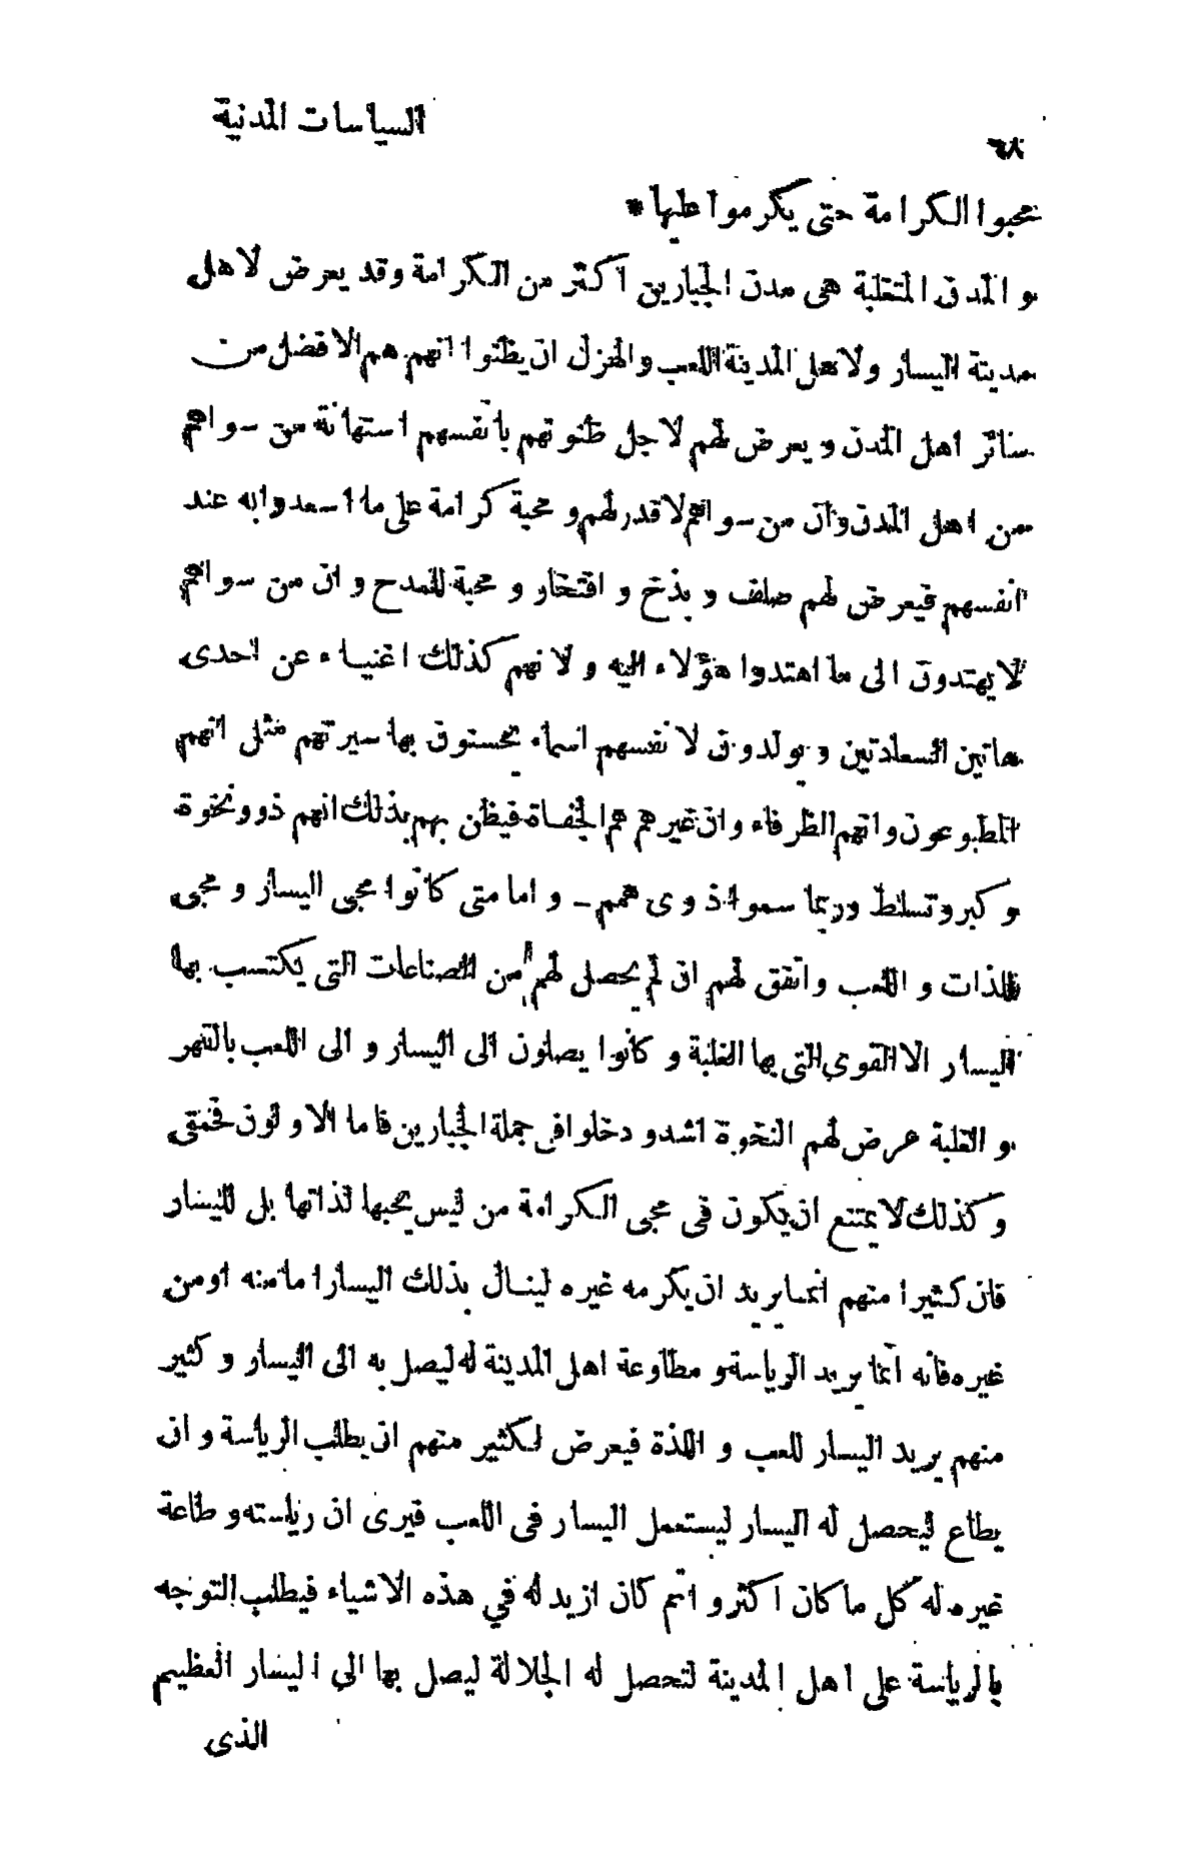 السياسات المدنية
٦٨
محبوا الكرامة حتى يكرموا عليها *
و المدن المتغلبة هي مدن الجبارين اكثر من الكرامة وقد يعرض لاهل
مدينة اليسار ولاهل المدينة اللعب والهزل ان يظنوا انهم هم الافضل من
سائر اهل المدن و يعرض لهم لاجل ظنونهم بانفسهم استهانة من سواهم
من اهل المدن وان من سواهم لاقدر لهم و محبة كرامة على ما اسعدوا به عند
انفسهم فيعرض لهم صلف و بذخ و افتخار و محبة للمدح و ان من سواهم
لا يهتدون الى ما اهتدوا هؤلاء اليه و لا نهم كذلك اغنياء عن احدى
هاتين السعادتين و يولدون لا نفسهم اسماء يحسنون بها سيرتهم مثل انهم
المطبوعون وانهم الظرفاء وان غيرهم هم الجفاة فيظن بهم بذلك انهم ذوو نخوة
و كبر و تسلط وربما سموا ذوى همم ــ و اما متى كانوا محبى اليسار و محبى
اللذات و اللعب واتفق لهم ان لم يحصل لهم من الصناعات التى يكتسب بها
اليسار الا القوى التى بها الغلبة و كانوا يصلون الى اليسار و الى اللعب بالقهر
و الغلبة عرض لهم النخوة اشد و دخلوا فى جملة الجبارين فاما الاولون فحمقى
وكذلك لا يمتنع ان يكون فى محبى الكرامة من ليس يحبها لذاتها بل لليسار
فان كثيرا منهم انما يريد ان يكرمه غيره لينال بذلك اليسار اما منه او من
غيره فانه انما يريد الرياسة و مطاوعة اهل المدينة له ليصل به الى اليسار و كثير
منهم يريد اليسار للعب و اللذة فيعرض لكثير منهم ان يطلب الرياسة و ان
يطاع ليحصل له اليسار ليستعمل اليسار فى اللعب فيرى ان رياسته و طاعة
غيره له كل ما كان اكثر و اتم كان ازيد له في هذه الاشياء فيطلب التوجه
بالرياسة على اهل المدينة لتحصل له الجلالة ليصل بها الي اليسار العظيم
الذى